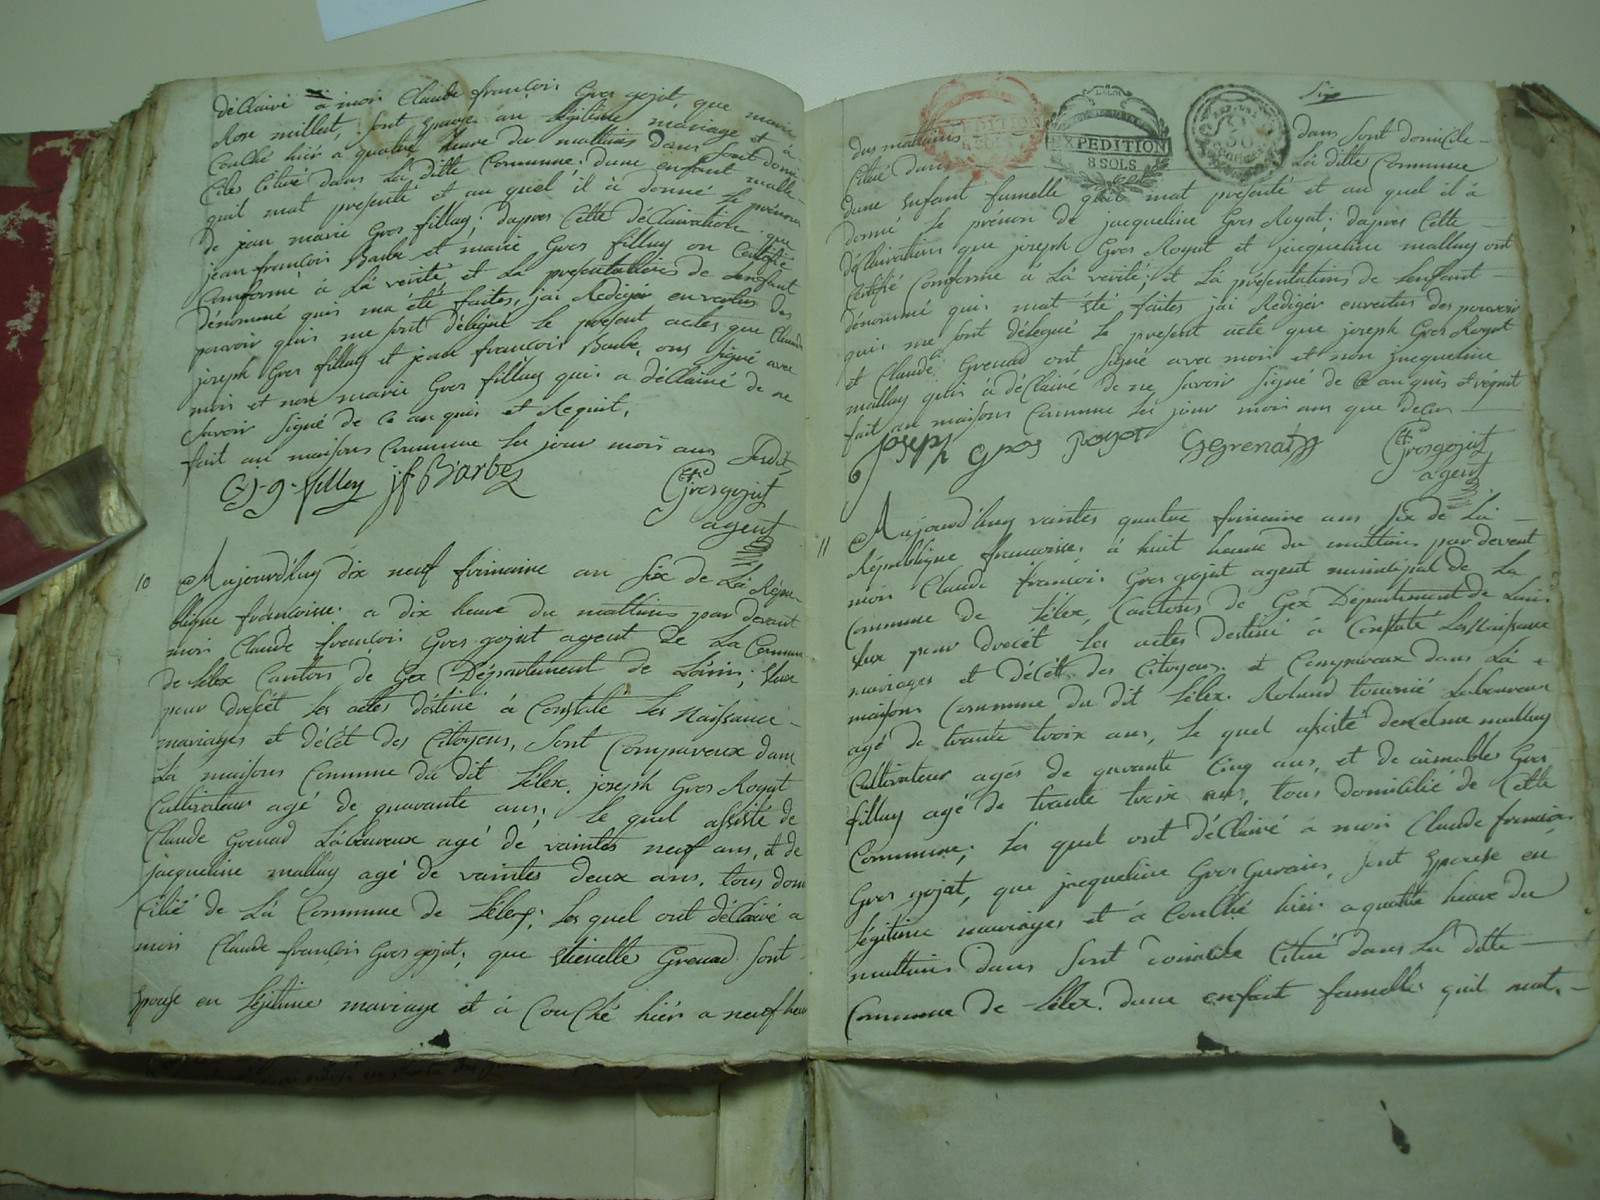 déClairé à moi Claude françois Gros gojat, que marie
Rose millet, sont Epouse au légitime mariage et à
Couché hièr a quatre heure du mattins Dans sont Domi
Cile Citué dans La ditte Commune; dune enfant malle
quil mat presenté et au quel il à donné le prénom
de jean marie Gros fillay; dapres Cette déClairation que
jean françois Barbe et marie Gros fillay on Certiffié
Comforme à La verité et La présentations de Lenfant
dénommé quis ma été faites, jai Rediger envertus des
pouvoir quis me sont délégué le présent actes que Claude
joseph Gros fillay et jean françois Barbe, ons signé avec
moi et non marie Gros fillay quis a déClairé de ne
savoir signé de Ce an quis et Requit,
fait au maisons Commune les jour mois ans susdit
C-j-g-filley jf Barbe Grosgojat
agent
10 Aujourd'huy dix neuf frimaire an six de La Répu
blique francoisse. a dix heure du mattins par devant
moi Claude françois Gros gojat agent de La Commune
de Lélex Cantons de Gex Département de Lain; Elux
pour dresét Les actes déstiné à Constaté Les Naissance
mariages et déCét des Citoyens, sont Comparreux dans
La maisons Commune du dit Lélex. joseph Gros Royat
Cultivateur agé de quarante ans; le quel assisté de
Claude Grenad Laboureux agé de vaintes neuf ans, et de
jacqueline mallay agé de vaintes deux ans. tous dom
Cilié de La Commune de Lélex; Les quel ont déClairé a
moi Claude françois Gros gojat, que Etienette Grenad sont
Epouse en légitime mariage et à Couché hièr a neuf heure
Six
dus mattains EXPEDITION 8 SOLS dans sont domicile
Citué dans La ditte Commune
dune enfant famelle quil mat présenté et au quel il à
donné le prénon de jacqueline Gros Royat; dapres Cette
déClairations que joseph Gros Royat et jacqueline mallay ont
Certifié Comforme à La verité; et La présentations de Lenfant
dénommé quis mat été faites jai Rediger envertus des pouvoir
quis me sont délegué le present acte que joseph Gros Royat
et Claude Grenad ont signé avec moi et non jacqueline
mallay quis à déClairé de ne savoir signé de Ce an quis et réquit
fait au maisons Commune les jour mois ans que decus
joseph gros Royat CGgrenad Grosgojat
agent
11 Aujourd'huy vaintes quatre frimaire ans six de La
République francoisse. à huit heure du mattins par devent
moi Claude françois Gros gojat agent municipal de La
Commune de Lélex, Cantons de Gex Département de Lain.
Elux pour dresét Les actes destiné à Constaté Les Naissance
mariages et déCét des Citoyens. est Comparreux dans La
maisons Commune du dit Lélex. Roland tournié Laboureux
agé de trante troix ans, le quel assisté denxelme mallay
Cultivateur agés de quarante Cinq ans, et de aimable Gros
fillay agé de trante troix ans, tous domicilié de Cette
Commune; Les quel ont déClairé à moi Claude françois
Gros gojat, que jacqueline Gros Gurain, sont Epouse en
légitime mariages et à Couché hièr a quatre heure du
mattains dans sont domicile Citué dans La ditte
Commune de Lélex. dune enfant famelle quil mat